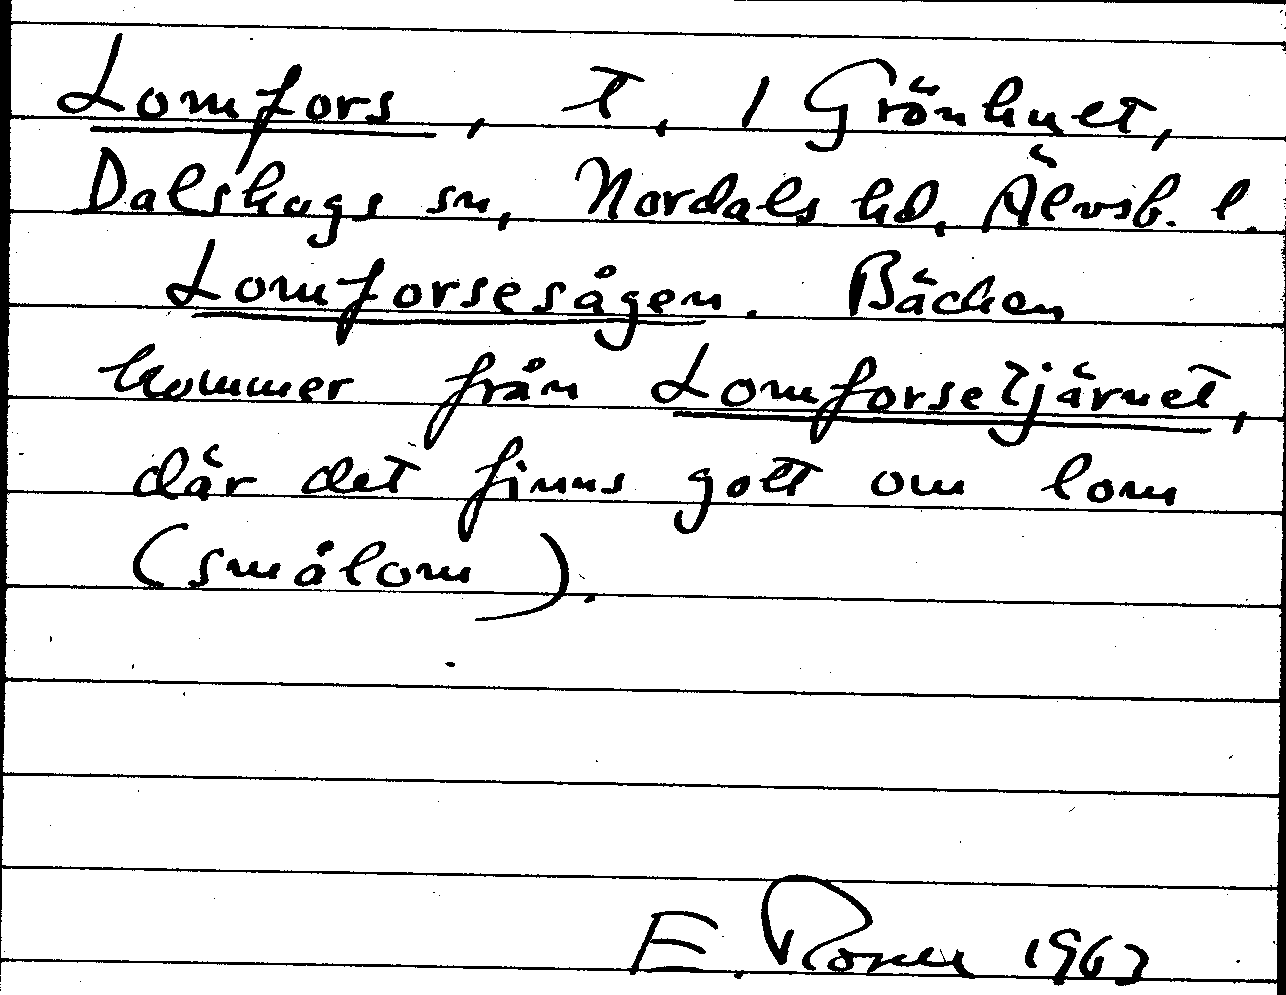 Lomfors, t. 1 Grönhult,
Dalskogs sn, Nordals hd, Älvsb. l.
Lomforsesågen. Bäcken
kommer från Lomforsetjärnet,
där det finns gott om lom
(smålom).
E. 1963